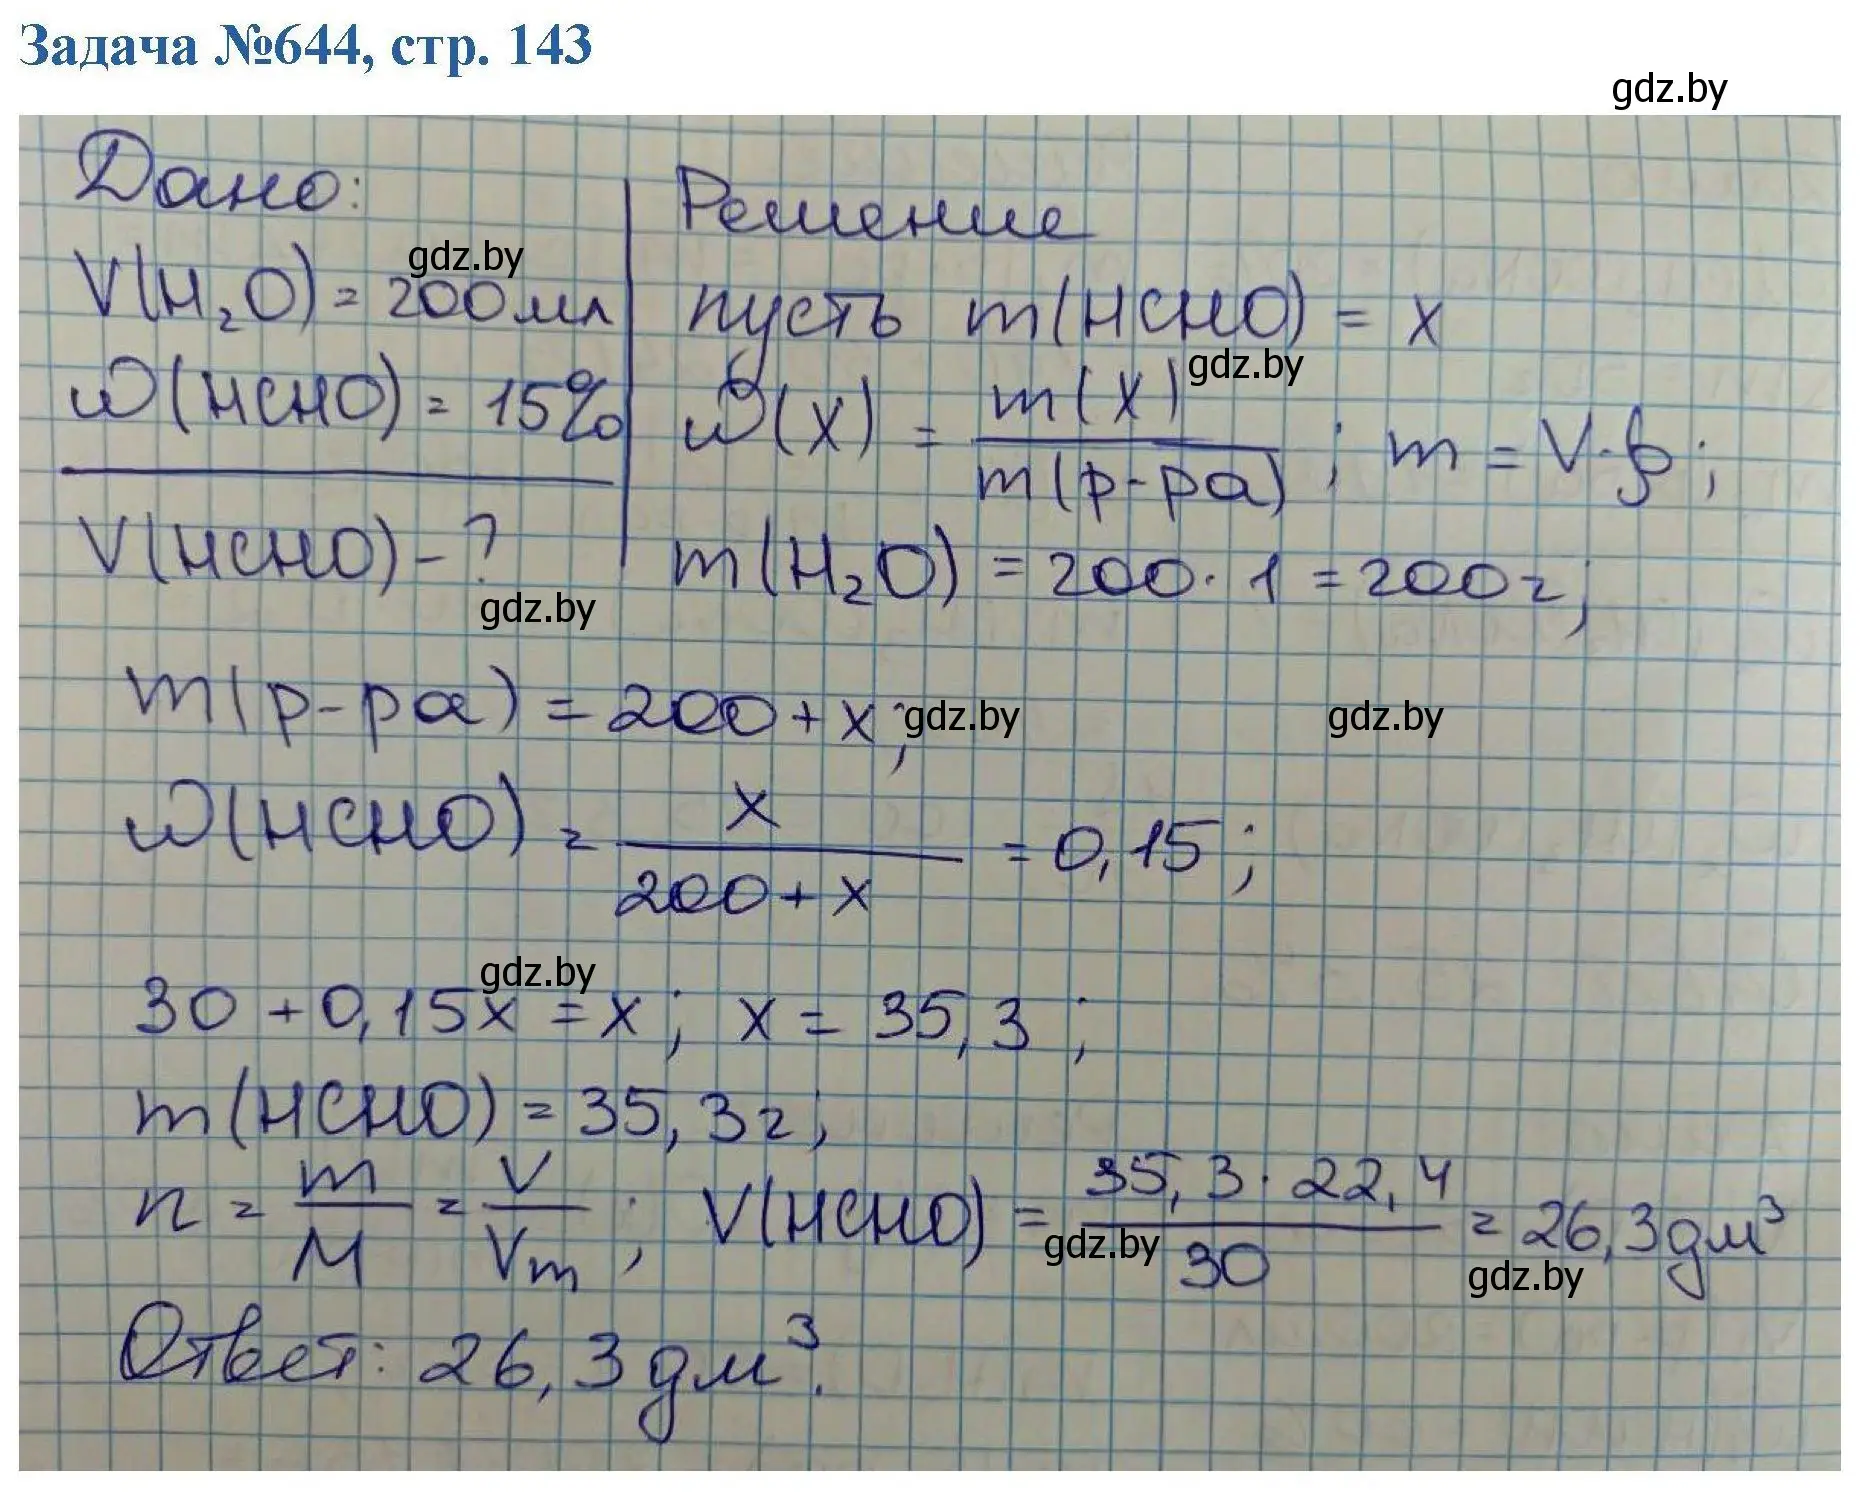 Задача №644, стр. 143
gdz.by
Дано:
V(H₂O) = 200 мл
gdz.by
ω(HCHO) = 15%
V(HCHO) - ?
gdz.by
Решение
пусть m(HCHO) = x
gdz.by
ω(X) = m(X) / m(р-ра) ; m = V·ρ;
m(H₂O) = 200·1 = 200 г;
m(р-ра) = 200 + x;
gdz.by gdz.by
ω(HCHO) = x / (200 + x) = 0,15;
gdz.by
30 + 0,15x = x; x = 35,3;
m(HCHO) = 35,3 г;
n = m/M = V/Vm; V(HCHO) = 35,3·22,4 / 30 = 26,3 дм³
gdz.by gdz.by
Ответ: 26,3 дм³.